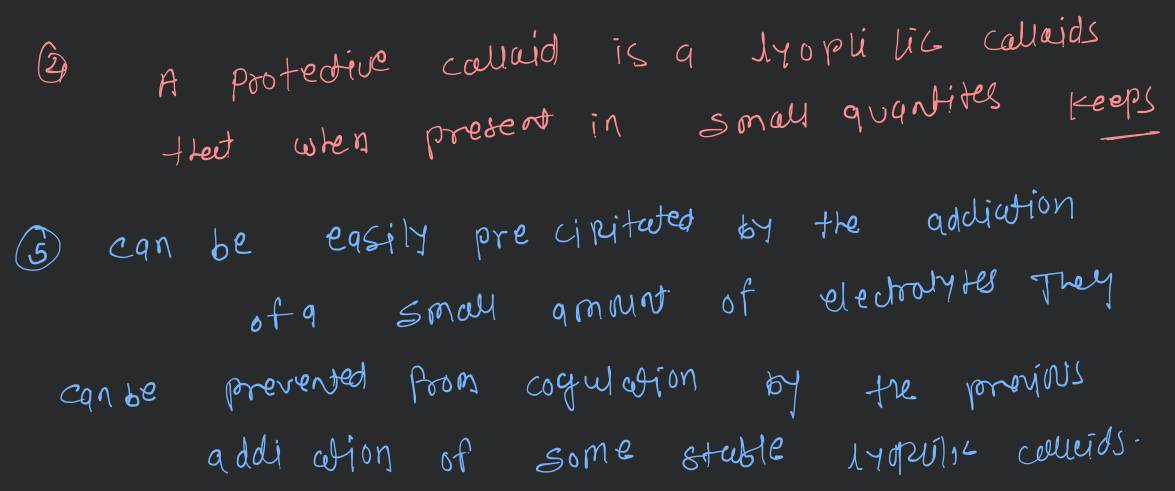 ② A protective callaid is a lyopli lic callaids
thet when present in small quantites keeps
⑤ can be easily pre cipitated by the addiation
of a small amount of electrolytes They
can be prevented from cogulation by the previous
addi ation of some stable lyopilic colleids.